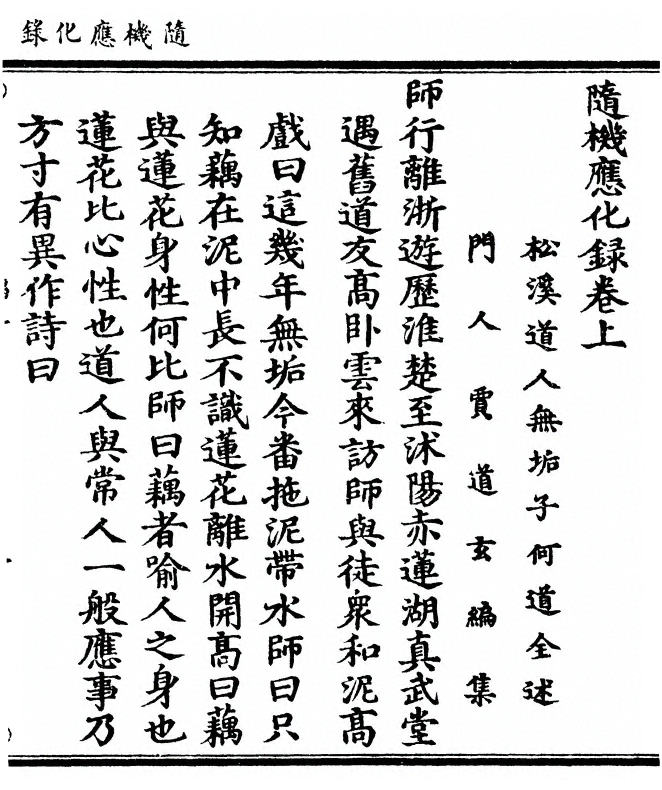 隨機應化錄
隨機應化録卷上
松溪道人無垢子何道全述
門人賈道玄編集
師行離浙遊歷淮楚至沭陽赤蓮湖真武堂
遇舊道友髙卧雲來訪師與徒衆和泥髙
戲曰這幾年無垢今番拖泥帶水師曰只
知藕在泥中長不識蓮花離水開髙曰藕
與蓮花身性何比師曰藕者喻人之身也
蓮花比心性也道人與常人一般應事乃
方寸有異作詩曰